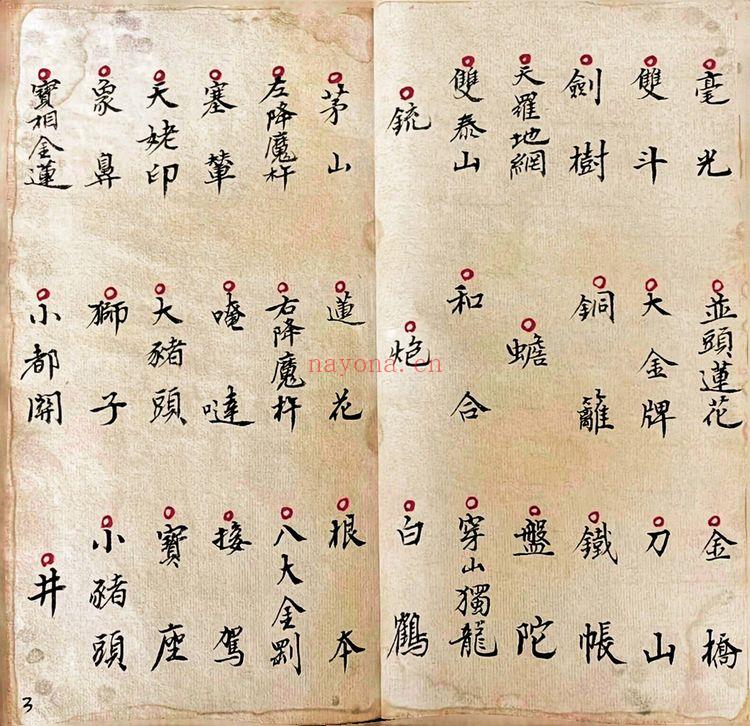 毫光 並頭蓮花 金橋
雙斗 大金牌 刀山
劍樹 銅籬 鐵帳
天羅地網 蟾 盤陀
雙泰山 和合 穿山獨龍
銃 炮 白鶴
茅山 蓮花 根本
左降魔杵 右降魔杵 八大金剛
塞葷 唵噠 接駕
天姥印 大豬頭 寶座
象鼻 獅子 小豬頭
寶相金蓮 小都開 井
3
nayona.cn